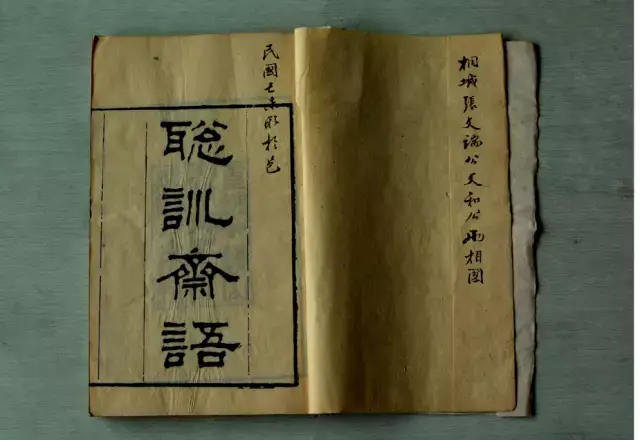 桐城張文端公文和公兩相國
民國己未於邑
聰訓齋語